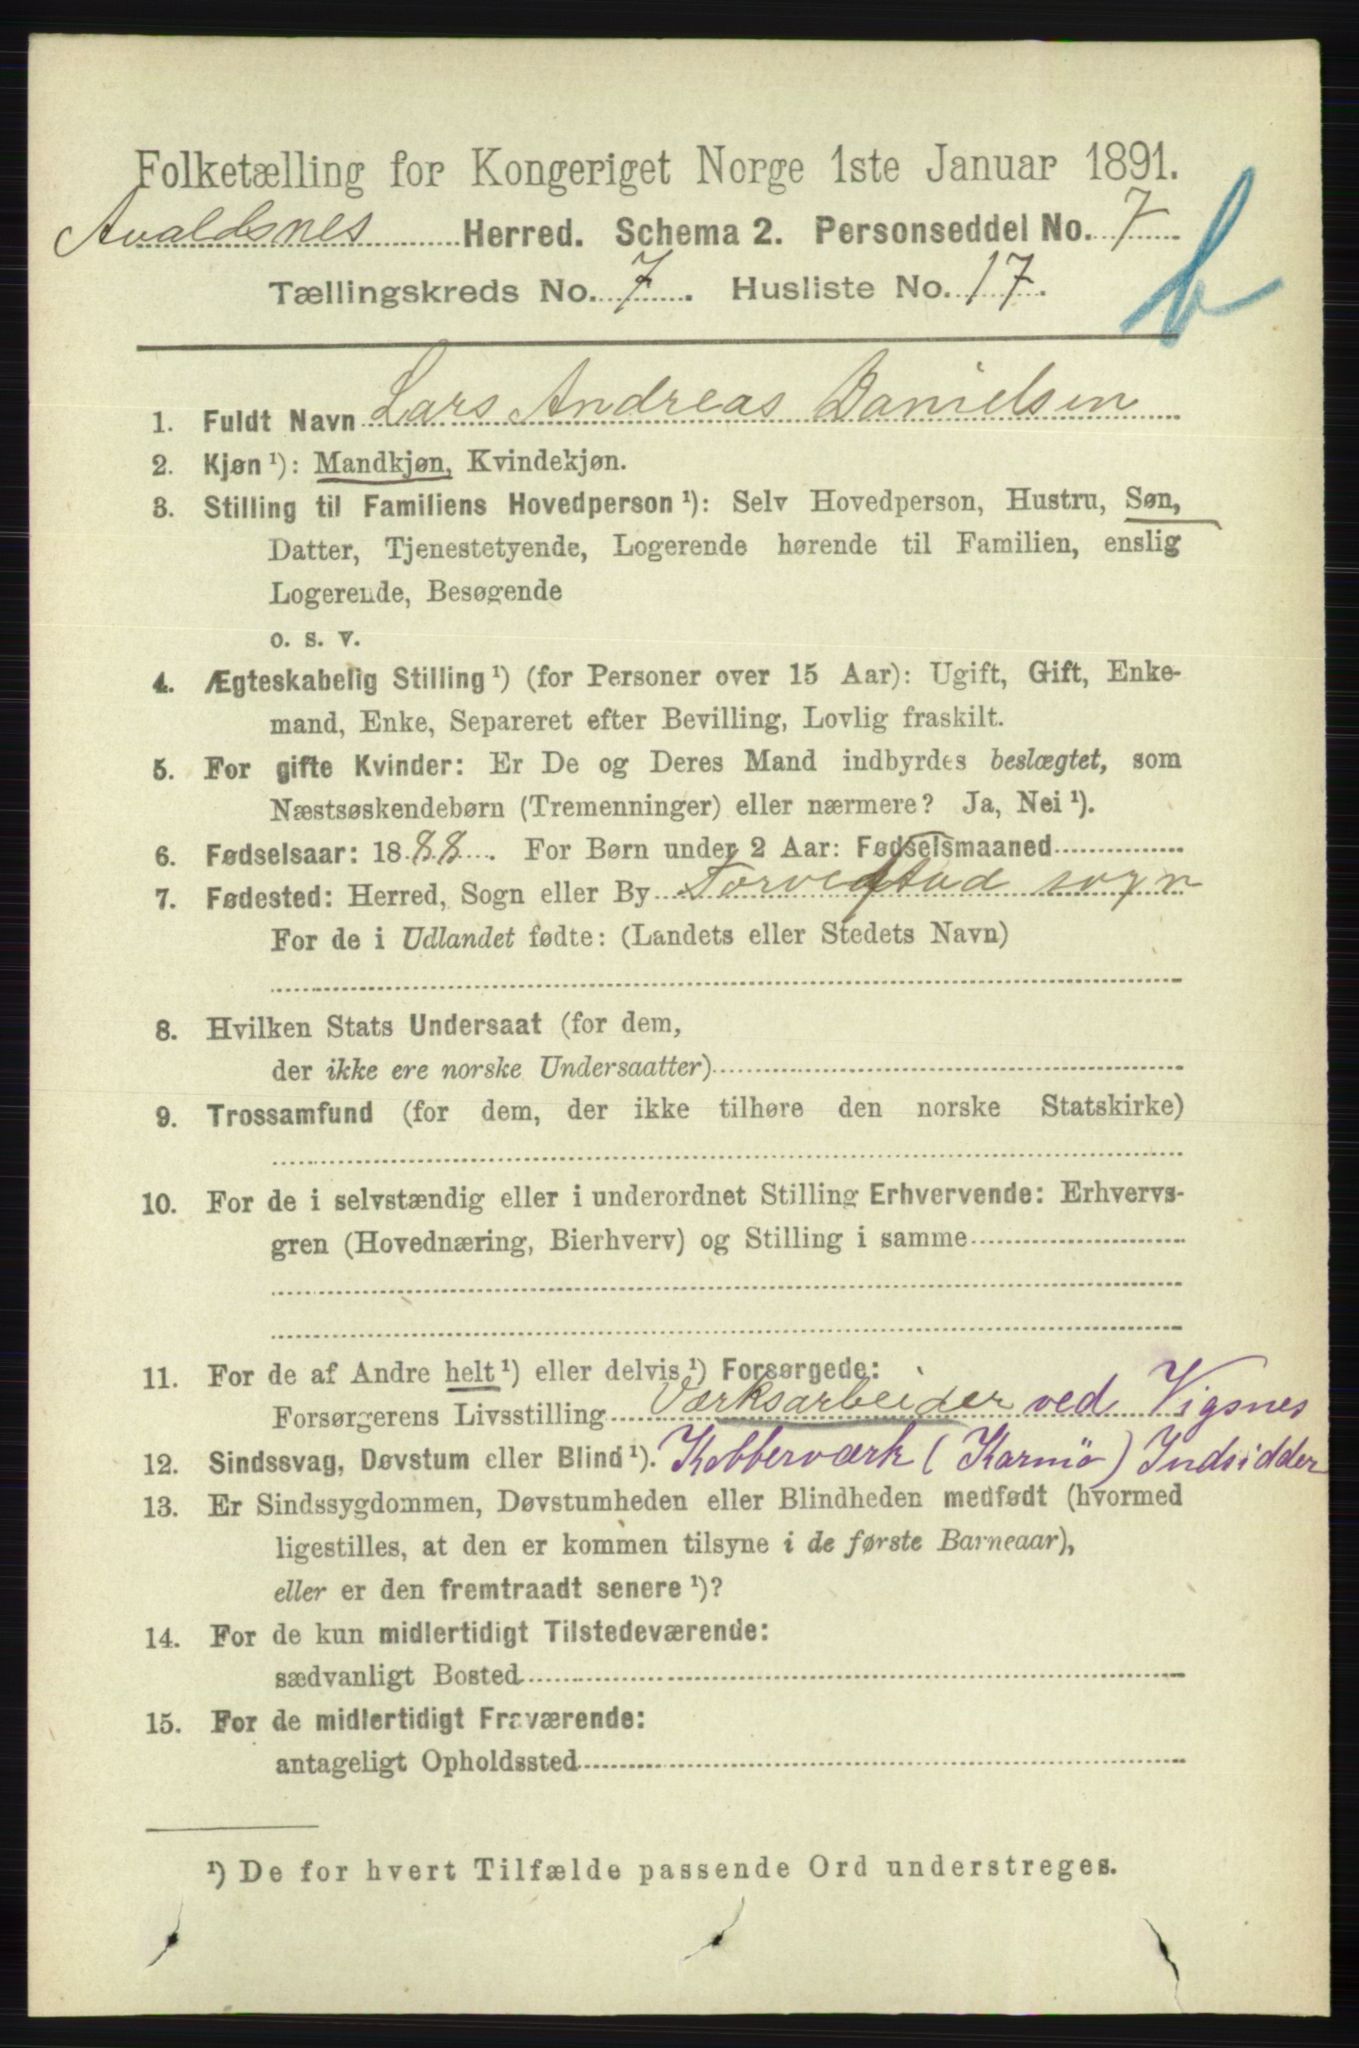 Folketælling for Kongeriget Norge 1ste Januar 1891.
Avaldsnes Herred. Schema 2. Personseddel No. 7
Tællingskreds No. 7. Husliste No. 17.
b
1. Fuldt Navn Lars Andreas Danielsen
2. Kjøn ¹): Mandkjøn, Kvindekjøn.
3. Stilling til Familiens Hovedperson ¹): Selv Hovedperson, Hustru, Søn,
Datter, Tjenestetyende, Logerende hørende til Familien, enslig
Logerende, Besøgende
o. s. v.
4. Ægteskabelig Stilling ¹) (for Personer over 15 Aar): Ugift, Gift, Enke-
mand, Enke, Separeret efter Bevilling, Lovlig fraskilt.
5. For gifte Kvinder: Er De og Deres Mand indbyrdes beslægtet, som
Næstsøskendebørn (Tremenninger) eller nærmere? Ja, Nei ¹).
6. Fødselsaar: 1888. For Børn under 2 Aar: Fødselsmaaned
7. Fødested: Herred, Sogn eller By Torvestad sogn
For de i Udlandet fødte: (Landets eller Stedets Navn)
8. Hvilken Stats Undersaat (for dem,
der ikke ere norske Undersaatter)
9. Trossamfund (for dem, der ikke tilhøre den norske Statskirke)
10. For de i selvstændig eller i underordnet Stilling Erhvervende: Erhvervs-
gren (Hovednæring, Bierhverv) og Stilling i samme
11. For de af Andre helt ¹) eller delvis ¹) Forsørgede:
Forsørgerens Livsstilling Værksarbeider ved Vigsnes
12. Sindssvag, Døvstum eller Blind ¹). Kobberværk (Karmö) Indsidder
13. Er Sindssygdommen, Døvstumheden eller Blindheden medfødt (hvormed
ligestilles, at den er kommen tilsyne i de første Barneaar),
eller er den fremtraadt senere ¹)?
14. For de kun midlertidigt Tilstedeværende:
sædvanligt Bosted
15. For de midlertidigt Fraværende:
antageligt Opholdssted
¹) De for hvert Tilfælde passende Ord understreges.